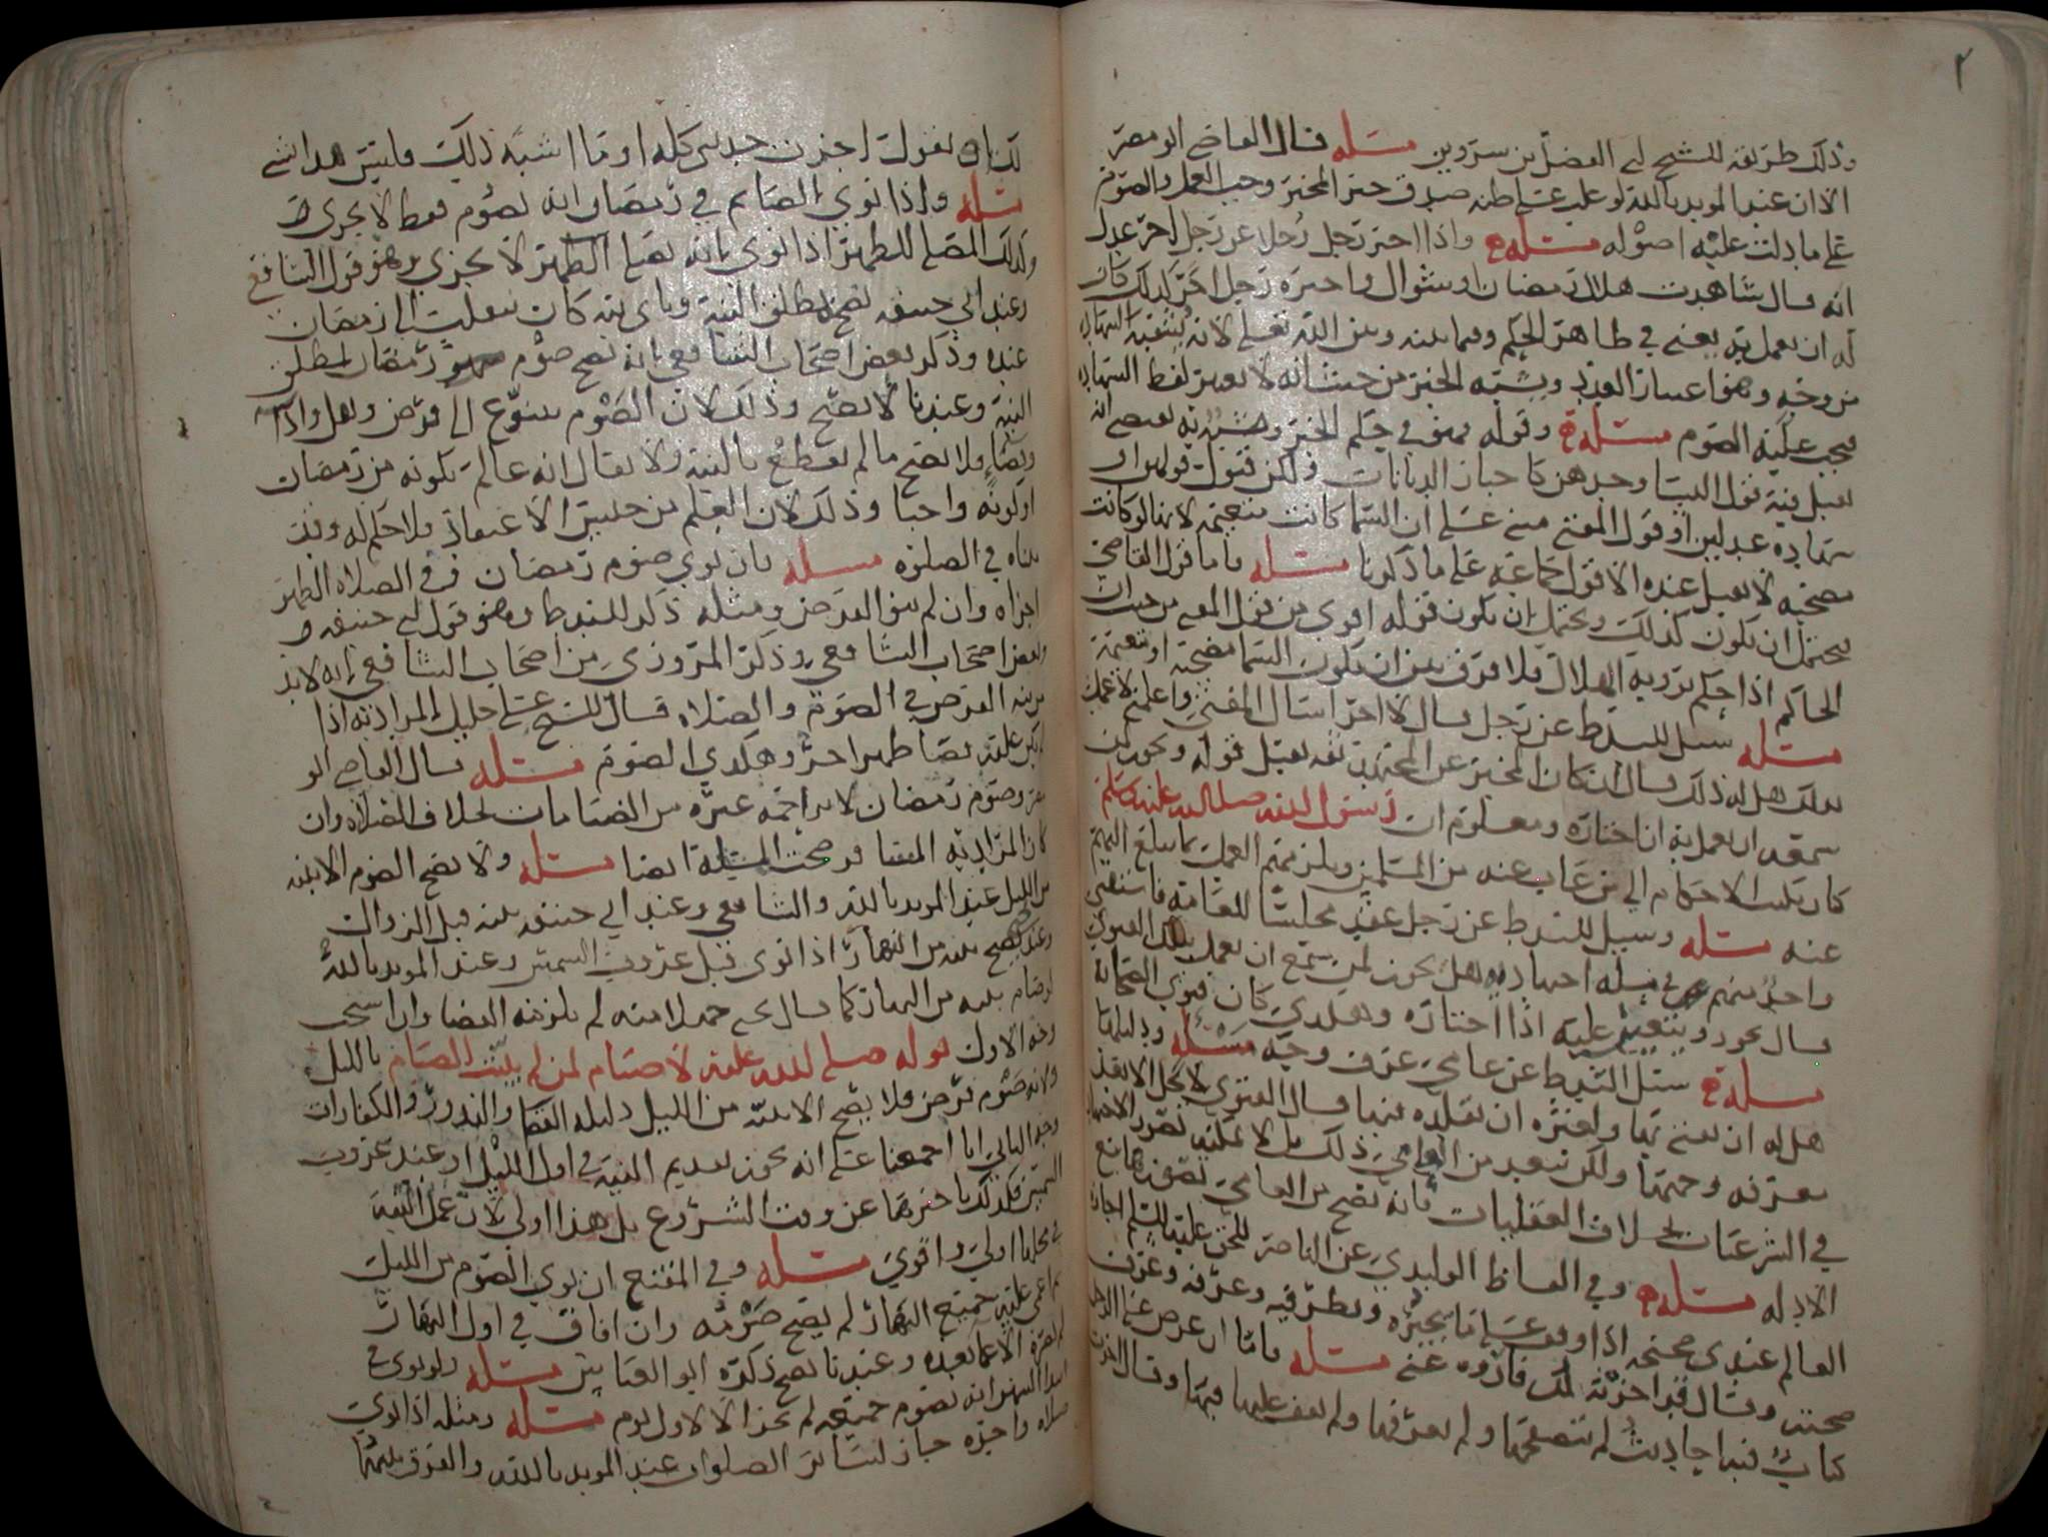 وذلك طريقه للشيخ لي الفضل بن سروين مسله قال القاضي ابو مضر
الا ان عند الموىد بالله لو غلب على ظنه صدق خبر المخبر وجب العمل والصوم
على ما دلت عليه اصوله مسله واذا اخبر رجل رجلا عن رجل اخر عدل
انه قال شاهدت هلال رمضان او شوال واخبره رجل اخر كذلك كان
له ان يعمل به يعني في ظاهر الحكم وفيما بينه وبين الله تعلى لانه يشبه الشهاده
من وجه وهو اعتبار العدد ويشبه الخبر من حيث انه لا يعتبر لفظ الشهاده
يجب عليه الصوم مسله وقوله فهو في حكم الخبر
يقبل فيه قول النسا وحدهن كاخبار الديانات ولكن قبول قولهن او
شهاده عدلين او قول المفتي مبني على ان السما كانت متغيمه لانها لو كانت
مصحيه لا يقبل عنده الا قول جماعه على ما ذكرنا مسله فاما قول القاضي
يحتمل ان يكون كذلك ويحتمل ان يكون قوله اقوى من قول المفتي من حيث ان
الحاكم اذا حكم برويه الهلال فلا فرق بين ان تكون السما مصحيه او متغيمه
مسله سىل للسيد ط عن رجل قال لاخر اسال المفتي واعلمني لاعمل
بذلك هل له ذلك قال ان كان المخبر عن المجتهد ثقه يقبل قوله ويجوز لمن
سمعه ان يعمل به ان اختاره ومعلوم ان رسول الله صلى الله عليه وسلم
كان يكتب الاحكام الى من غاب عنه من المسلمين ويلزمهم العمل بما يبلغ اليهم
عنه مسله وسىل للسيد ط عن رجل عقد مجلسا للعامه فاستفتى
واحد منهم في مسله اجتهاديه هل يجوز لمن سمع ان يعمل بتلك الفتوى
قال يجوز ويتعين عليه اذا اختاره وهكذى كان فتوى الصحابه
مسله سىل السيد ط عن عامي عرف وجه مسىله ودليلها
هل له ان يفتي بها ولغيره ان يقلده فيها قال الفتوى لا تحل الا بعد
معرفه وجهها ولكن يبعد من العامي ذلك بل لا يمكنه تصور الاجتهاد
في الشرعيات بخلاف العقليات فانه يصح من العامي تصورها مع
الادله مسله وفي الفاظ الوليدي عن الناصر للحق عليه السلم اجازه
العالم عندي صحيحه اذا وقف على ما يجيزه ونظر فيه وعرفه وعرف
صحته وقال قد اجزته لك فاروه عني مسله فاما ان عرض على الرجل
كتاب فيه احاديث لم يتصفحها ولم يعرفها ولم يقف عليها فيها وقال اجزت
لك او يقول اجزت حديثي كله او ما اشبه ذلك فليس هذا شي
مسله واذا نوى الصايم في رمضان انه يصوم فقط لا يجزى
وكذلك المصلي للظهر اذا نوى بانه يصلي الظهر لا يجزي وهو قول الشافعي
وعند ابي حنيفه يصح بمطلق النيه وباي نيه كان ينقلب الى رمضان
عنده وذكر بعض اصحاب الشافعي بانه يصح صوم رمضان بمطلق
النيه وعندنا لا يصح وذلك لان الصوم يتنوع الى فرض ونفل واداء
وقضاء فلا يصح ما لم يقطع بالنيه ولا يقال انه عالم بكونه من رمضان
او كونه واجبا وذلك لان العلم من جنس الاعتقاد فلا حكم له وقد
بيناه في الصلوه مسله فان نوى صوم رمضان وفي الصلاه الظهر
اجزاه وان لم ينو الفرض ومثله ذكر للسيد ط وهو قول لي حنيفه و
بعض اصحاب الشافعي وذكر المروزي من اصحاب الشافعي انه لا بد
من نيه الفرض في الصوم والصلاه قال للشيخ علي خليل المراد به اذا
لم يكن عليه قضا ظهر اخر وهكذي الصوم مسله قال القاضي ابو
مضر وصوم رمضان لا يزاحمه غيره من الصيامات بخلاف الصلاه وان
كان المراد به القضا فرضحت المسله ايضا مسله ولا يصح الصوم الا بنيه
من الليل عند الموىد بالله والشافعي وعند ابي حنيفه بنيه قبل الزوال
وعندنا يصح بنيه من النهار اذا نوى قبل غروب الشمس وعند الموىد بالله
لو صام بنيه من النهار كما قال يحيى لم يلزمه القضا وان استحب
وجه الاول قوله صلى الله عليه لا صيام لمن لم يبيت الصيام بالليل
ولانه صوم فرض فلا يصح الا بنيه من الليل دليله القضا والنذور والكفارات
وجه الثاني انا اجمعنا على انه يجوز تقديم النيه في اول الليل او عند غروب
الشمس فكذلك تاخيرها عن وقت الشروع بل هذا اولى لان عمل النيه
في محلها اولى واقوى مسله وفي المفتتح ان نوى الصوم من الليل
ثم اغمي عليه جميع النهار لم يصح صومه وان افاق في اول النهار
لم يضره الاغما بعده وعندنا يصح ذكره ابو العباس مسله ولو نوى في
ابتدا الشهر انه يصوم جميعه لم يجز الا لاول يوم مسله ومثله اذا نوى
صلاه واحده جاز لسائر الصلوات عند الموىد بالله والفرق بينهما